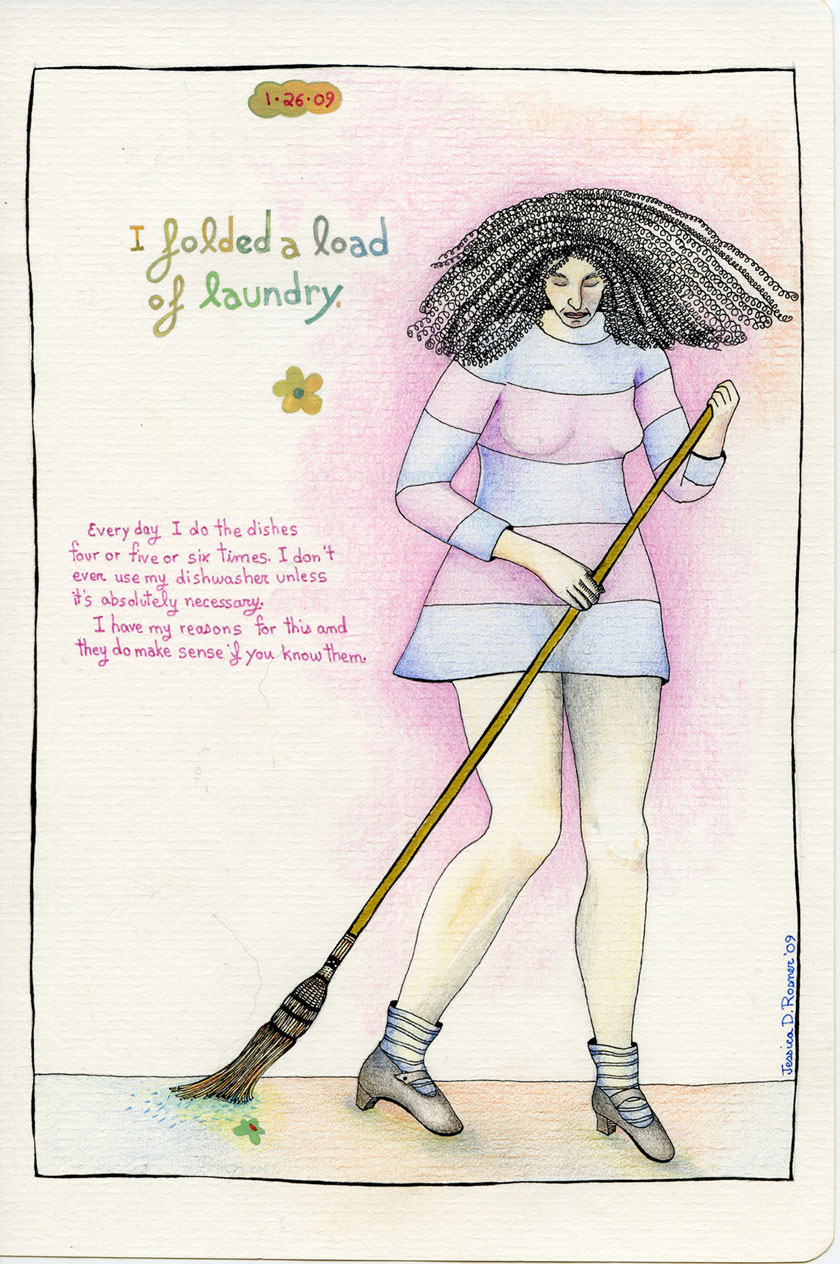 1·26·09
I folded a load
of laundry.
Every day I do the dishes
four or five or six times. I don't
even use my dishwasher unless
it's absolutely necessary.
I have my reasons for this and
they do make sense if you know them.
Jessica D. Rosner '09